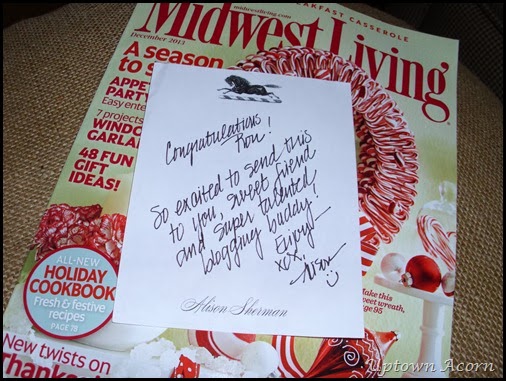 midwestliving.com
BREAKFAST CASSEROLE
Midwest Living
December 2013
A season
to
APPE
PARTY
Easy ente
7 projects
WINDO
GARLA
48 FUN
GIFT
IDEAS!
ALL-NEW
HOLIDAY
COOKBOOK
Fresh & festive
recipes
PAGE 78
New twists on
Thanks
Congratulations
Ron!
So excited to send this
to you, sweet friend
and super talented
blogging buddy!
Enjoy!
xox,
Alison
Alison Sherman
Make this
sweet wreath,
page 95
Uptown Acorn